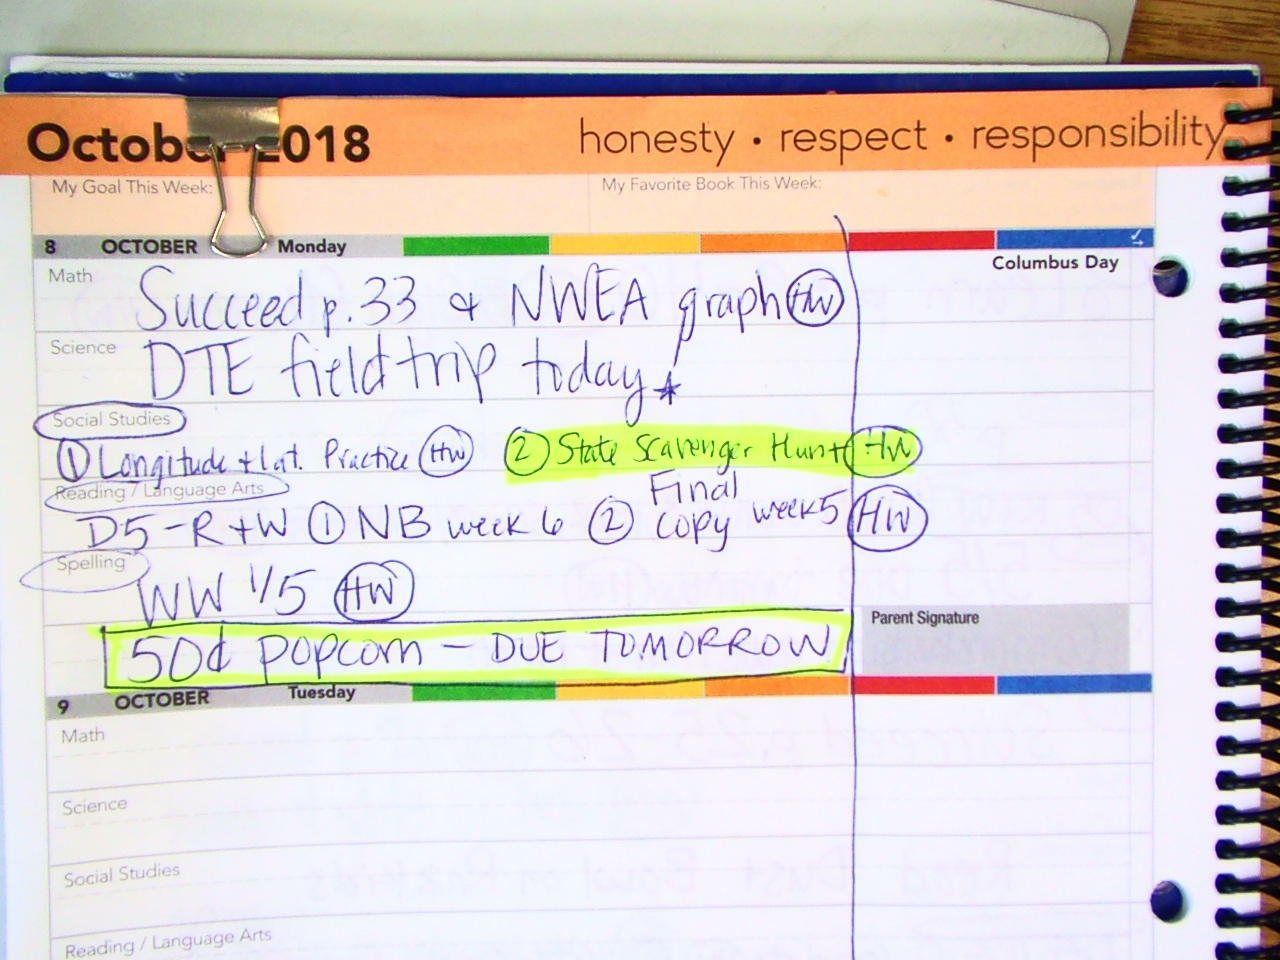 October 2018
honesty • respect • responsibility
My Goal This Week:
My Favorite Book This Week:
8 OCTOBER Monday
Columbus Day
Math
Succeed p. 33 & NWEA graph HW
Science
DTE field trip today
Social Studies
① Longitude + Lat. Practice HW ② State Scavenger Hunt HW
Reading / Language Arts
D5 - R + W ① NB week 6 ② Final Copy week 5 HW
Spelling
WW 1/5 HW
50¢ POPCORN - DUE TOMORROW
Parent Signature
9 OCTOBER Tuesday
Math
Science
Social Studies
Reading / Language Arts